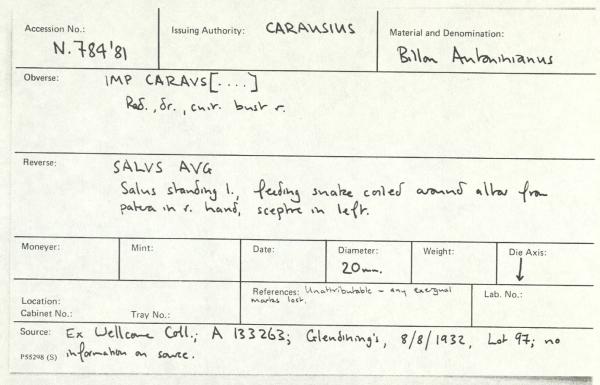 Accession No.:
N.784'81
Issuing Authority: CARAUSIUS
Material and Denomination:
Billon Antoninianus
Obverse: IMP CARAVS[....]
Rad., dr., cuir. bust r.
Reverse: SALVS AVG
Salus standing l., feeding snake coiled around altar from
patera in r. hand, sceptre in left.
Moneyer:
Mint:
Date:
Diameter:
20mm.
Weight:
Die Axis:
↓
Location:
Cabinet No.:
Tray No.:
References: Unattributable - any exergual
marks lost.
Lab. No.:
Source: Ex Wellcome Coll.; A 133263; Glendining's, 8/8/1932, Lot 97; no
P55298 (S) information on source.